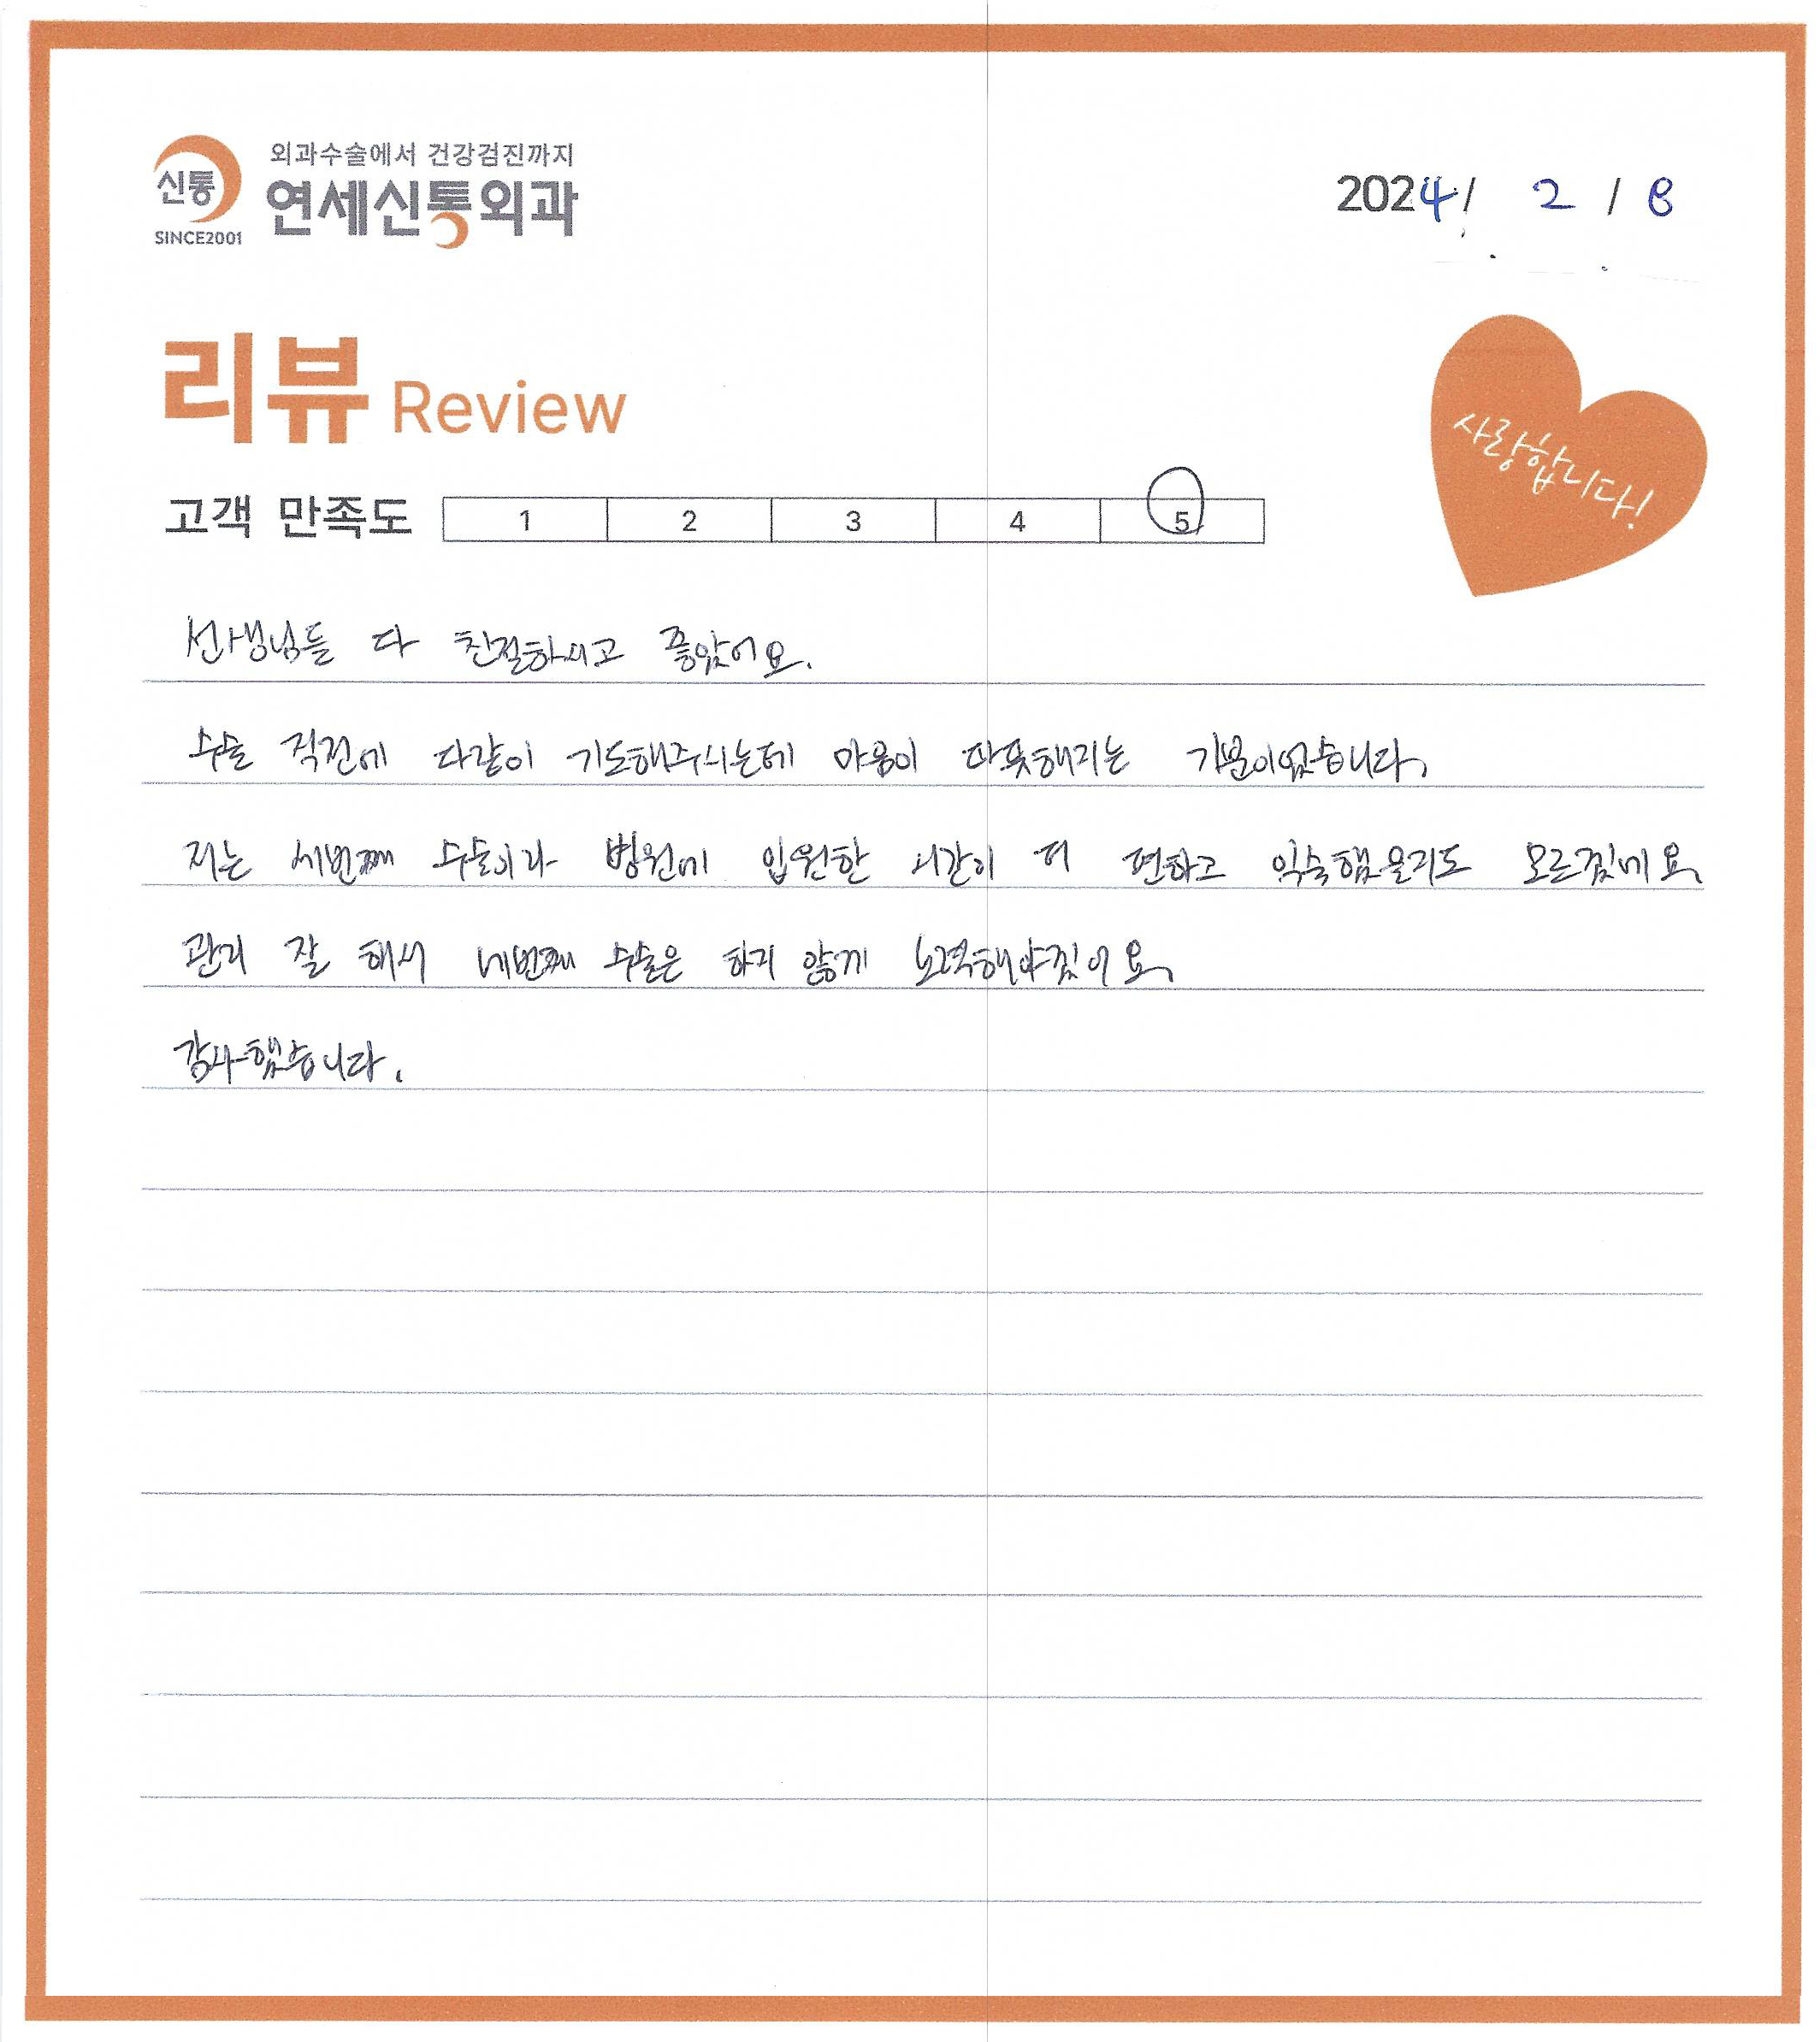 외과수술에서 건강검진까지
신통 연세신통외과
SINCE2001
2024 / 2 / 8
리뷰 Review
사랑합니다!
고객 만족도 1 2 3 4 5
선생님들 다 친절하시고 좋았어요.
수술 직전에 다같이 기도해주시는데 마음이 따뜻해지는 기분이었습니다.
저는 세번째 수술이라 병원에 입원한 시간이 더 편하고 익숙했을지도 모르겠네요.
관리 잘 해서 네번째 수술은 하지 않게 노력해야겠어요.
감사했습니다.